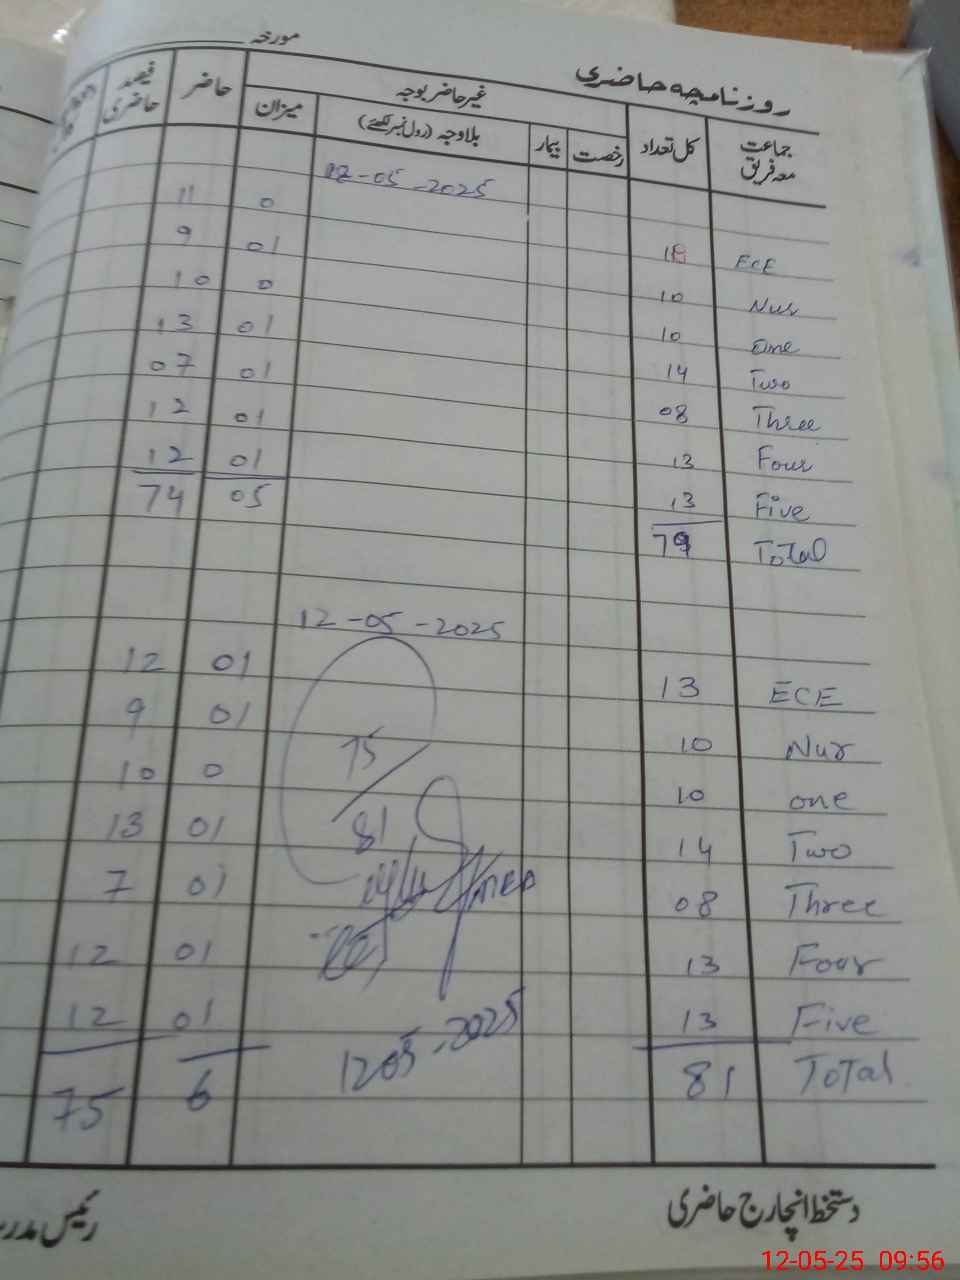 روزنامچہ حاضری مورخہ
جماعت معہ فریق کل تعداد غیر حاضر بوجہ حاضر فیصد حاضری
رخصت بیمار بلاوجہ (رول نمبر لکھئے) میزان
-05-2025
ECE 0 11
Nur 10 01 9
One 10 0 10
Two 14 01 13
Three 08 01 07
Four 13 01 12
Five 13 01 12
Total 79 05 74
12-05-2025
ECE 13 01 12
Nur 10 01 9
one 10 0 10
Two 14 01 13
Three 08 01 7
Four 13 01 12
Five 13 01 12
Total 81 6 75
75/81
12 05-2025
دستخط انچارج حاضری رئیس مدر
12-05-25 09:56